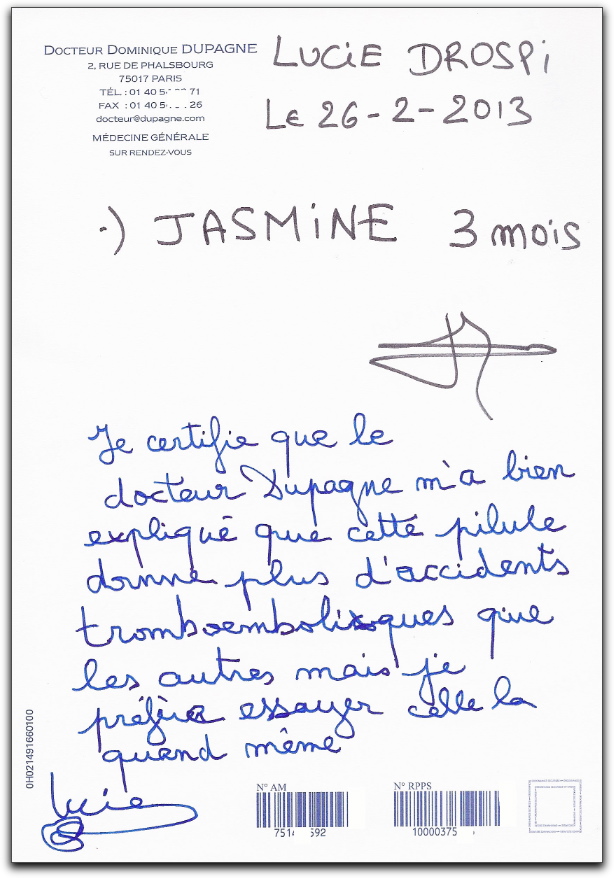 DOCTEUR DOMINIQUE DUPAGNE
2, RUE DE PHALSBOURG
75017 PARIS
TÉL. : 01 40 5 71
FAX : 01 40 5 26
docteur@dupagne.com
MÉDECINE GÉNÉRALE
SUR RENDEZ-VOUS
LUCiE DROSPi
LE 26-2-2013
·) JASMiNE 3 mois
Je certifie que le
docteur Dupagne m'a bien
expliqué que cette pilule
donne plus d'accidents
tromboemboliques que
les autres mais je
préfère essayer celle la
quand même
Lucie
0H021491660100
N° AM
751 592
N° RPPS
10000375